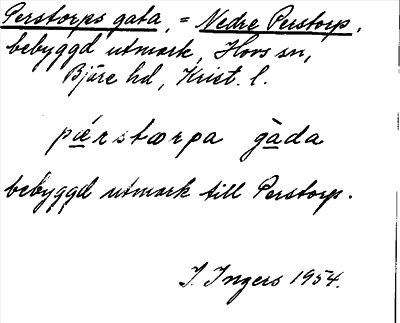 Perstorps gata, = Nedre Perstorp,
bebyggd utmark, Hovs sn,
Bjäre hd, Krist. l.
pæ̀rstærpa gàda
bebyggd utmark till Perstorp.
I. Ingers 1954.